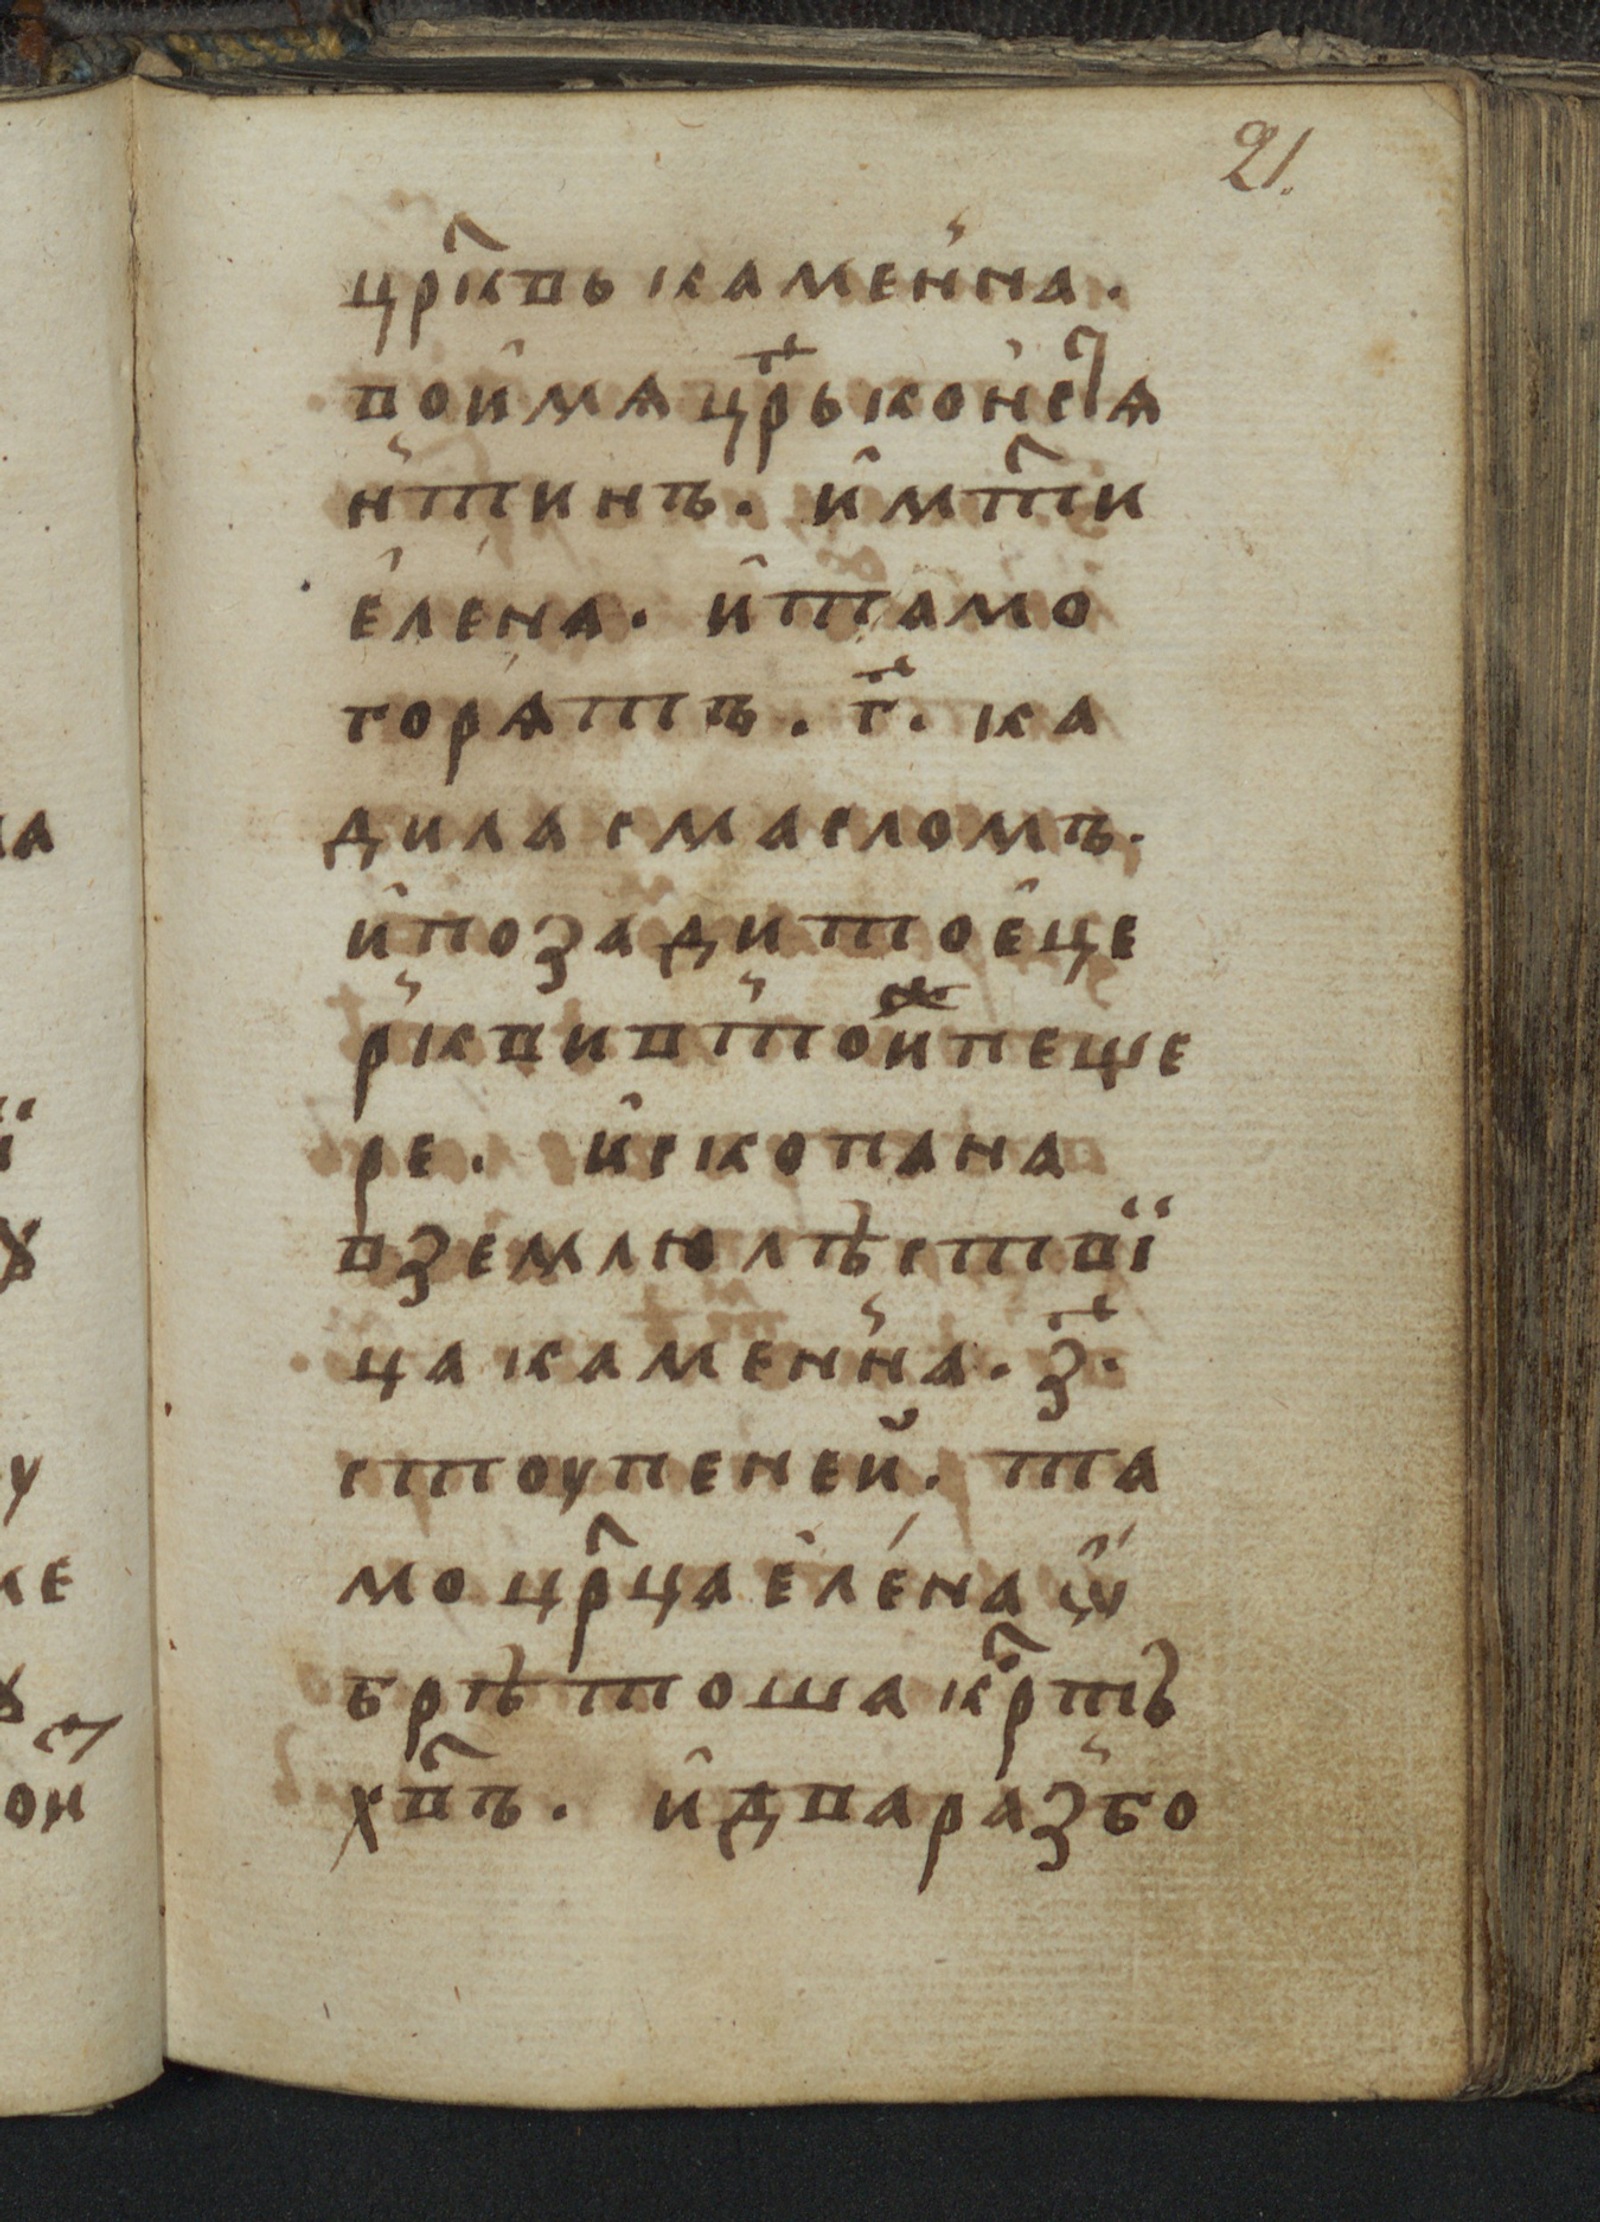 21.
цр҇квь каменна.
во имѧ цр҃ь конс̾тѧ
нтинъ. и҆ мт҇и
е҆лена. и҆ тамо
горѧтъ. г҃. ка
дила с масломъ.
и҆ позади тое҆ це
ркви в той пеще
ре. и҆скопана
в землю лѣствї
ца каменна. з҃.
стоупеней. та
мо цр҇ца е҆ле́на ѡ҆́
брѣтоша кр҇тъ
хв҇ъ. и҆ два разбо